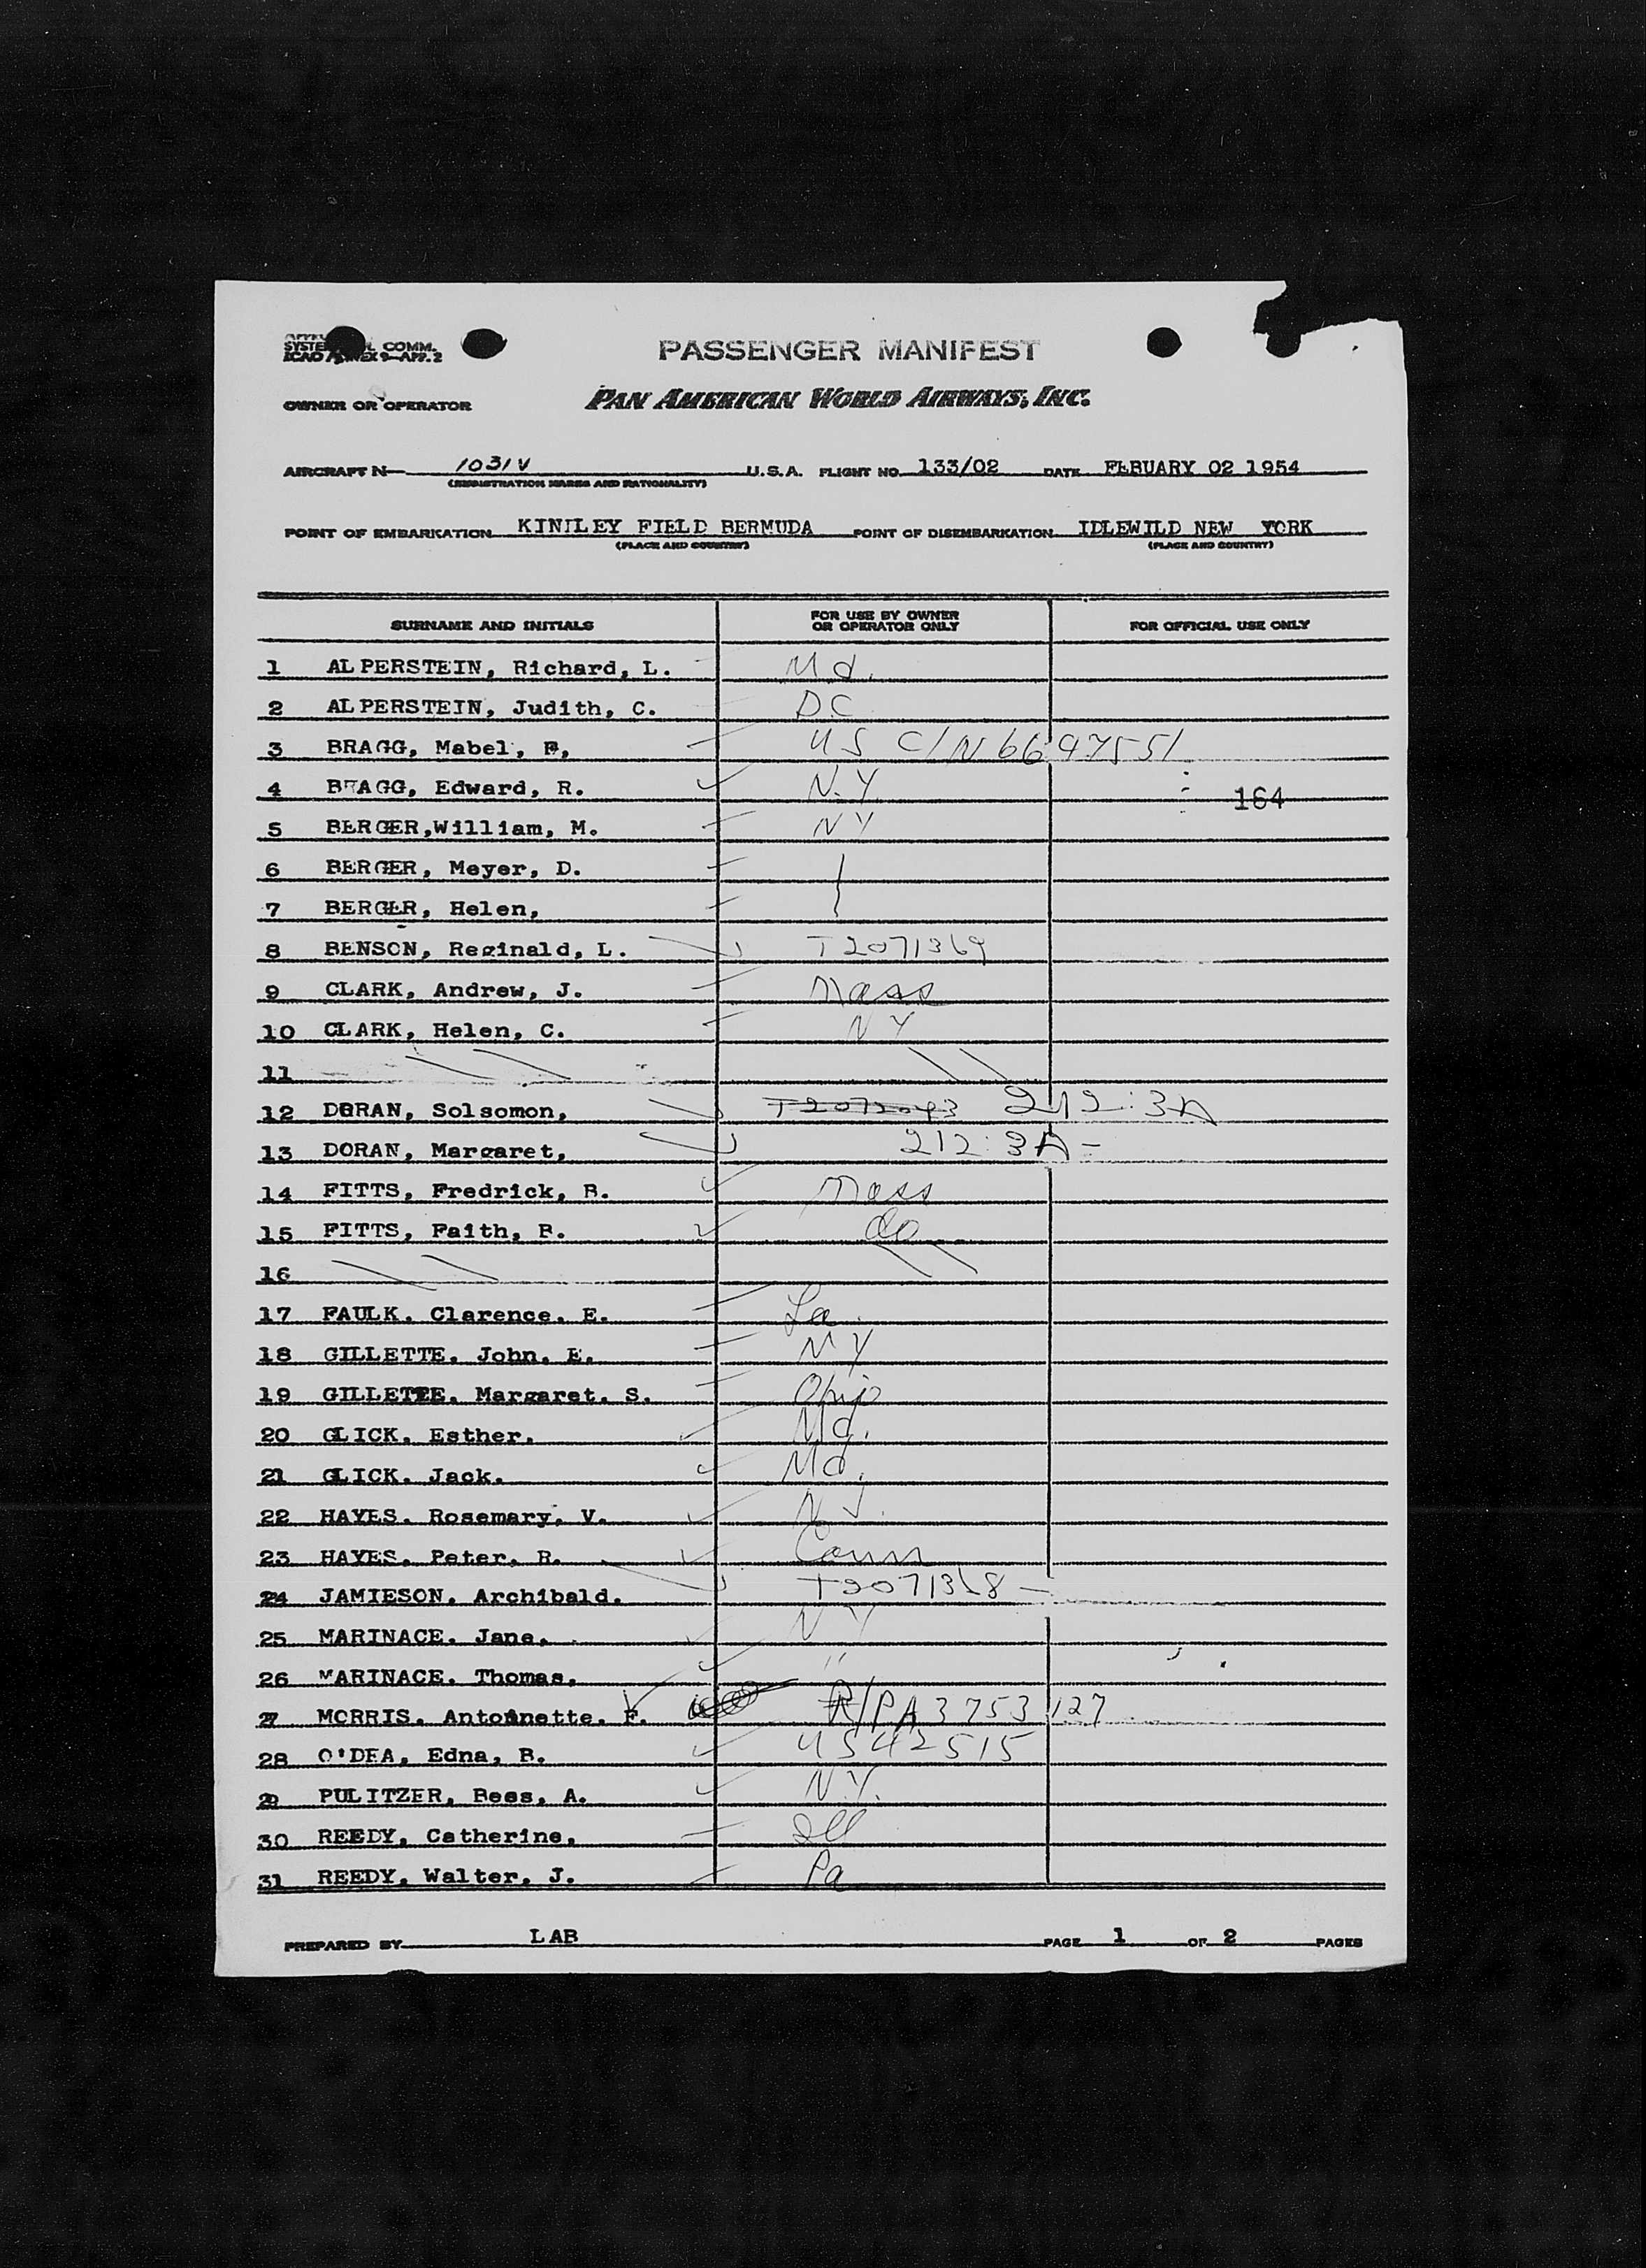 SYSTE L COMM.
ICAO ANNEX 9—APP. 2
PASSENGER MANIFEST
OWNER OR OPERATOR PAN AMERICAN WORLD AIRWAYS, INC.
AIRCRAFT N— 1031V U.S.A. FLIGHT NO. 133/02 DATE FEBUARY 02 1954
(REGISTRATION MARKS AND NATIONALITY)
POINT OF EMBARKATION KINILEY FIELD BERMUDA POINT OF DISEMBARKATION IDLEWILD NEW YORK
(PLACE AND COUNTRY) (PLACE AND COUNTRY)
SURNAME AND INITIALS FOR USE BY OWNER OR OPERATOR ONLY FOR OFFICIAL USE ONLY
1 ALPERSTEIN, Richard, L. Md.
2 ALPERSTEIN, Judith, C. D.C
3 BRAGG, Mabel, US C/N 6697551
4 BRAGG, Edward, R. N.Y. 164
5 BERGER,William, M. NY
6 BERGER, Meyer, D.
7 BERGER, Helen,
8 BENSON, Reginald, L. T2071369
9 CLARK, Andrew, J. Mass
10 CLARK, Helen, C. NY
11
12 DORAN, Solsomon, T2072043 212:3A
13 DORAN, Margaret, 212:3A-
14 FITTS, Fredrick, B. Mass
15 FITTS, Faith, B. do
16
17 FAULK, Clarence, E. La.
18 GILLETTE, John, E. NY
19 GILLETTE, Margaret, S. Ohio
20 GLICK, Esther, Md.
21 GLICK, Jack, Md.
22 HAYES, Rosemary, V. N.J.
23 HAYES, Peter, R. Conn
24 JAMIESON, Archibald, T2071368 -
25 MARINACE, Jane, NY
26 MARINACE, Thomas, "
27 MORRIS, Antoinette, F. R/PA3753127
28 O'DEA, Edna, B. US42515
29 PULITZER, Bess, A. N.Y.
30 REEDY, Catherine, Ill
31 REEDY, Walter, J. Pa
PREPARED BY LAB PAGE 1 OF 2 PAGES